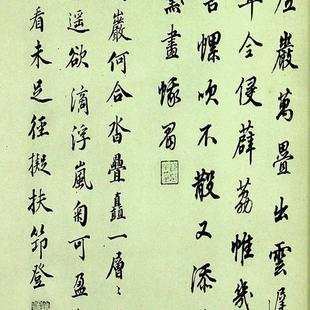 巖萬疊出雲
侵薜荔帷幾
螺吹不散又添
畫蛾眉
巖何合沓疊矗一層〻
遥欲滴浮嵐菊可盈
看未足徑擬扶笻登